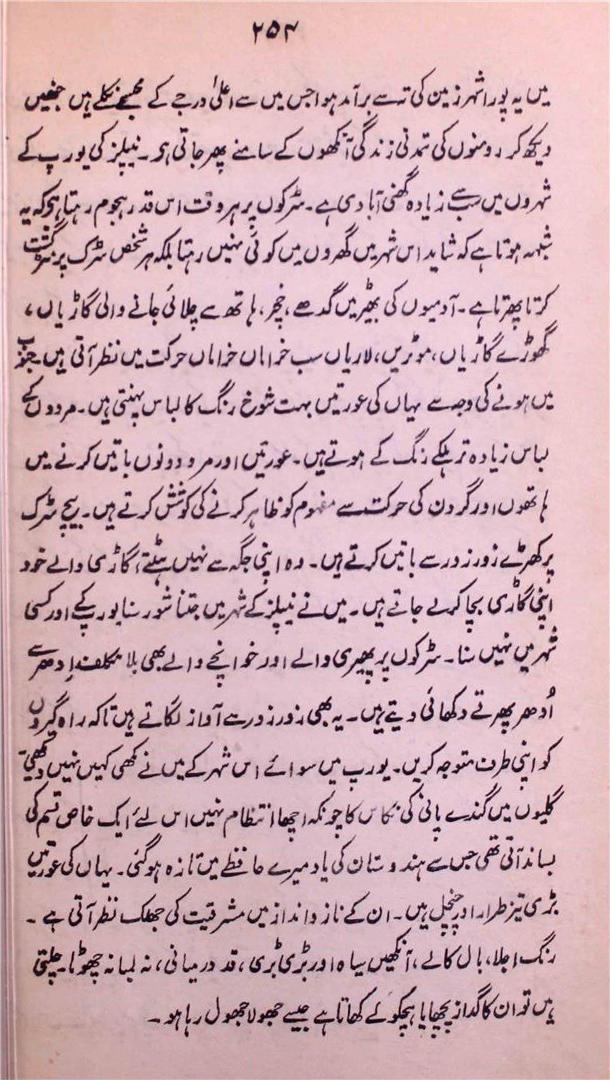 ۲۵۴
میں یہ پورا شہر زمین کی تہ سے برآمد ہوا جس میں سے اعلیٰ درجے کے مجسمے نکلے ہیں جنھیں
دیکھ کر رومنوں کی تمدنی زندگی آنکھوں کے سامنے پھر جاتی ہو۔ نیپلز کی یورپ کے
شہروں میں سب سے زیادہ گھنی آبادی ہے۔ سڑکوں پر ہر وقت اس قدر ہجوم رہتا ہو کہ یہ
شبہہ ہوتا ہے کہ شاید اس شہر میں گھروں میں کوئی نہیں رہتا بلکہ ہر شخص سڑک پر گشت
کرتا پھرتا ہے۔ آدمیوں کی بھیڑ میں گدھے، خچر، ہاتھ سے چلائی جانے والی گاڑیاں،
گھوڑے گاڑیاں، موٹریں، لاریاں سب خراماں خراماں حرکت میں نظر آتی ہیں۔ جنوب
میں ہونے کی وجہ سے یہاں کی عورتیں بہت شوخ رنگ کا لباس پہنتی ہیں۔ مردوں کے
لباس زیادہ تر ہلکے رنگ کے ہوتے ہیں۔ عورتیں اور مرد دونوں باتیں کرنے میں
ہاتھوں اور گردن کی حرکت سے مفہوم کو ظاہر کرنے کی کوشش کرتے ہیں۔ بیچ سڑک
پر کھڑے زور زور سے باتیں کرتے ہیں۔ وہ اپنی جگہ سے نہیں ہٹتے، گاڑی والے خود
اپنی گاڑی بچا کر لے جاتے ہیں۔ میں نے نیپلز کے شہر میں جتنا شور سنا یورپ کے اور کسی
شہر میں نہیں سنا۔ سڑکوں پر پھیری والے اور خوانچے والے بھی بلا تکلف اِدھر سے
اُدھر پھرتے دکھائی دیتے ہیں۔ یہ بھی زور زور سے آواز لگاتے ہیں تاکہ راہ گیروں
کو اپنی طرف متوجہ کریں۔ یورپ میں سوائے اس شہر کے میں نے مکھی کہیں نہیں دیکھی۔
گلیوں میں گندے پانی کی نکاس کا چونکہ اچھا انتظام نہیں اس لئے ایک خاص قسم کی
بساند آتی تھی جس سے ہندوستان کی یاد میرے حافظے میں تازہ ہو گئی۔ یہاں کی عورتیں
بڑی تیز طرار اور چنچل ہیں۔ ان کے ناز و انداز میں مشرقیت کی جھلک نظر آتی ہے۔
رنگ اجلا، بال کالے، آنکھیں سیاہ اور بڑی بڑی، قد درمیانی، نہ لمبا نہ چھوٹا۔ چلتی
ہیں تو ان کا گداز پچھایا ہچکولے کھاتا ہے جیسے جھولا جھول رہا ہو۔